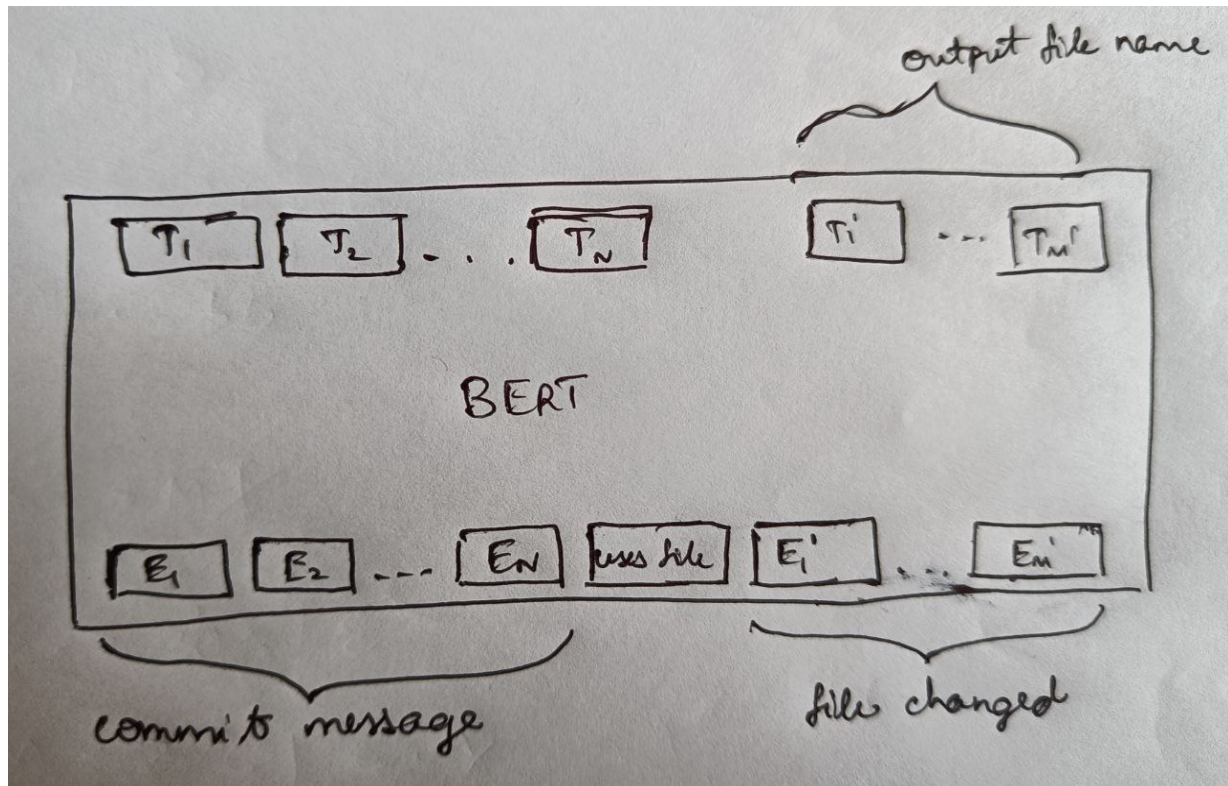 output file name
T₁ T₂ . . . T_N T₁' ... T_M'
BERT
E₁ E₂ ... E_N uses file E₁' ... E_M'
commit message file changed